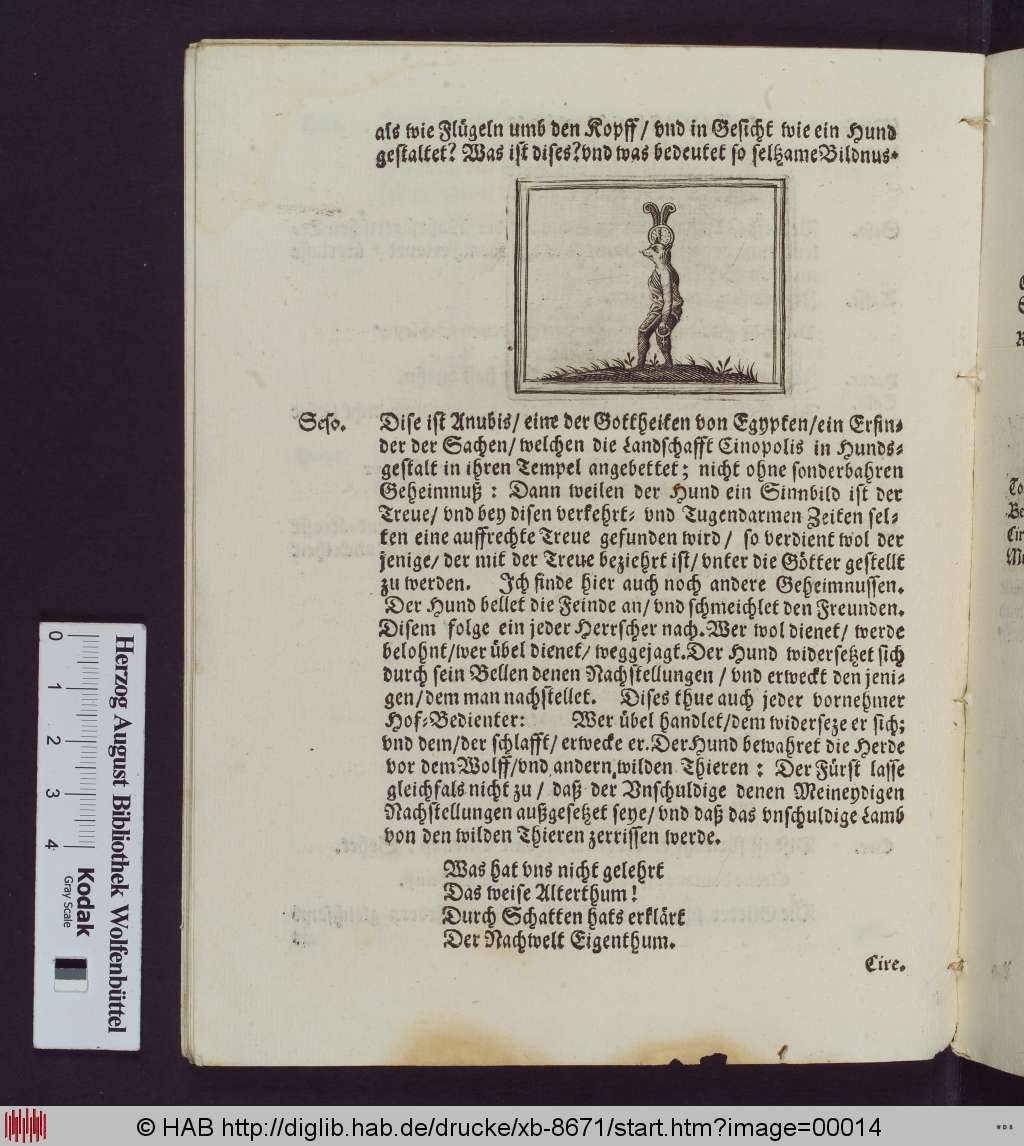 als wie Flügeln umb den Kopff/ vnd in Gesicht wie ein Hund
gestaltet? Was ist dises? vnd was bedeutet so seltzame Bildnus.
Seso. Dise ist Anubis/ eine der Gottheiten von Egypten/ein Erfin-
der der Sachen/ welchen die Landschafft Cinopolis in Hunds-
gestalt in ihren Tempel angebettet; nicht ohne sonderbahren
Geheimnuß: Dann weilen der Hund ein Sinnbild ist der
Treue/ vnd bey disen verkehrt- vnd Tugendarmen Zeiten sel-
ten eine auffrechte Treue gefunden wird/ so verdient wol der
jenige/ der mit der Treue beziehrt ist/ vnter die Götter gestellt
zu werden. Ich finde hier auch noch andere Geheimnussen.
Der Hund bellet die Feinde an/ vnd schmeichlet den Freunden.
Disem folge ein jeder Herrscher nach. Wer wol dienet/ werde
belohnt/wer übel dienet/ weggejagt. Der Hund widersetzet sich
durch sein Bellen denen Nachstellungen / vnd erweckt den jeni-
gen/ dem man nachstellet. Dises thue auch jeder vornehmer
Hof-Bedienter: Wer übel handlet/dem widerseze er sich;
vnd dem/der schlafft/ erwecke er. Der Hund bewahret die Herde
vor dem Wolff/vnd andern wilden Thieren: Der Fürst lasse
gleichfals nicht zu / daß der Vnschuldige denen Meineydigen
Nachstellungen außgesetzet seye/ vnd daß das vnschuldige Lamb
von den wilden Thieren zerrissen werde.
Was hat vns nicht gelehrt
Das weise Alterthum!
Durch Schatten hats erklärt
Der Nachwelt Eigenthum.
Cire.
0 1 2 3 4
Herzog August Bibliothek Wolfenbüttel
Kodak
Gray Scale
© HAB http://diglib.hab.de/drucke/xb-8671/start.htm?image=00014